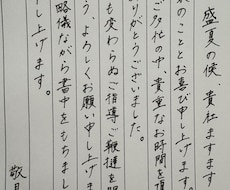 盛夏の候、貴社ますます
のこととお喜び申し上げます。
ご多忙の中、貴重なお時間を頂
りがとうございました。
も変わらぬご指導ご鞭撻を賜
う、よろしくお願い申し上げま
略儀ながら書中をもちまし
し上げます。
敬具